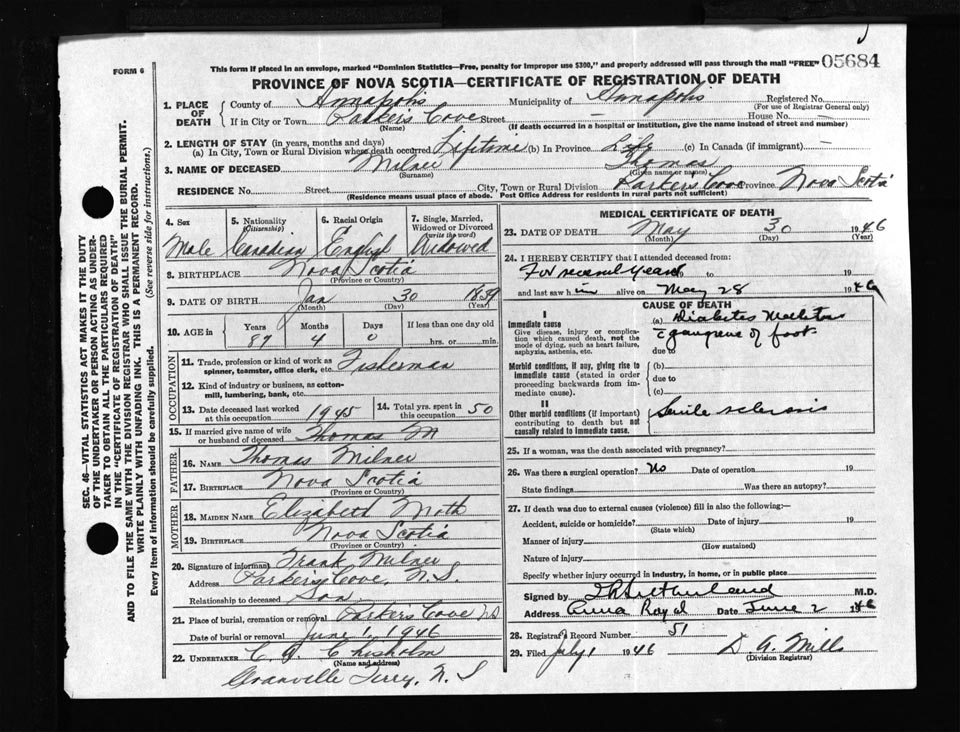 FORM 6
This form if placed in an envelope, marked "Dominion Statistics—Free, penalty for improper use $300," and properly addressed will pass through the mail "FREE"
05684
PROVINCE OF NOVA SCOTIA—CERTIFICATE OF REGISTRATION OF DEATH
SEC. 46—VITAL STATISTICS ACT MAKES IT THE DUTY
OF THE UNDERTAKER OR PERSON ACTING AS UNDER-
TAKER TO OBTAIN ALL THE PARTICULARS REQUIRED
IN THE "CERTIFICATE OF REGISTRATION OF DEATH"
AND TO FILE THE SAME WITH THE DIVISION REGISTRAR WHO SHALL ISSUE THE BURIAL PERMIT.
WRITE PLAINLY WITH UNFADING INK. THIS IS A PERMANENT RECORD.
Every item of information should be carefully supplied. (See reverse side for instructions.)
1. PLACE OF DEATH { County of Annapolis Municipality of Annapolis Registered No.
(For use of Registrar General only)
If in City or Town Parkers Cove Street — House No. —
(Name) (If death occurred in a hospital or institution, give the name instead of street and number)
2. LENGTH OF STAY (in years, months and days)
(a) In City, Town or Rural Division where death occurred Lifetime (b) In Province Life (c) In Canada (if immigrant) —
3. NAME OF DECEASED Milner Thomas
(Surname) (Given name or names)
RESIDENCE No. Street City, Town or Rural Division Parkers Cove Province Nova Scotia
(Residence means usual place of abode. Post Office Address for residents in rural parts not sufficient)
4. Sex 5. Nationality (Citizenship) 6. Racial Origin 7. Single, Married, Widowed or Divorced (write the word)
Male Canadian English Widowed
8. BIRTHPLACE Nova Scotia
(Province or Country)
9. DATE OF BIRTH Jan 30 1859
(Month) (Day) (Year)
10. AGE in { Years Months Days If less than one day old
87 4 0 hrs. or min.
OCCUPATION
11. Trade, profession or kind of work as Fisherman
spinner, teamster, office clerk, etc.
12. Kind of industry or business, as cotton-
mill, lumbering, bank, etc.
13. Date deceased last worked at this occupation 1945 14. Total yrs. spent in this occupation 50
15. If married give name of wife or husband of deceased Thomas M
FATHER
16. NAME Thomas Milner
17. BIRTHPLACE Nova Scotia
(Province or Country)
MOTHER
18. MAIDEN NAME Elizabeth
19. BIRTHPLACE Nova Scotia
(Province or Country)
20. Signature of informant Frank Milner
Address Parkers Cove, N.S.
Relationship to deceased Son
21. Place of burial, cremation or removal Parkers Cove NS
Date of burial or removal June 1, 1946
22. UNDERTAKER C. A. Chisholm
(Name and address)
Granville Ferry, N. S
MEDICAL CERTIFICATE OF DEATH
23. DATE OF DEATH May 30 1946
(Month) (Day) (Year)
24. I HEREBY CERTIFY that I attended deceased from:
For several years 19 to 19
and last saw him alive on May 28 1946
CAUSE OF DEATH
I
Immediate cause (a) Diabetes Mellitus
Give disease, injury or complica-
tion which caused death, not the
mode of dying, such as heart failure,
asphyxia, asthenia, etc.
c gangrene of foot
due to
Morbid conditions, if any, giving rise to
immediate cause (stated in order
proceeding backwards from im-
mediate cause).
(b)
due to
(c)
II
Other morbid conditions (if important)
contributing to death but not
causally related to immediate cause.
Senile sclerosis
25. If a woman, was the death associated with pregnancy?
26. Was there a surgical operation? No Date of operation 19
State findings Was there an autopsy?
27. If death was due to external causes (violence) fill in also the following:—
Accident, suicide or homicide? Date of injury 19
(State which)
Manner of injury
(How sustained)
Nature of injury
Specify whether injury occurred in industry, in home, or in public place
Signed by Sutherland M.D.
Address Anna Royal Date June 2 1946
28. Registrar's Record Number 51
29. Filed July 1 1946 D. A. Mills
(Division Registrar)